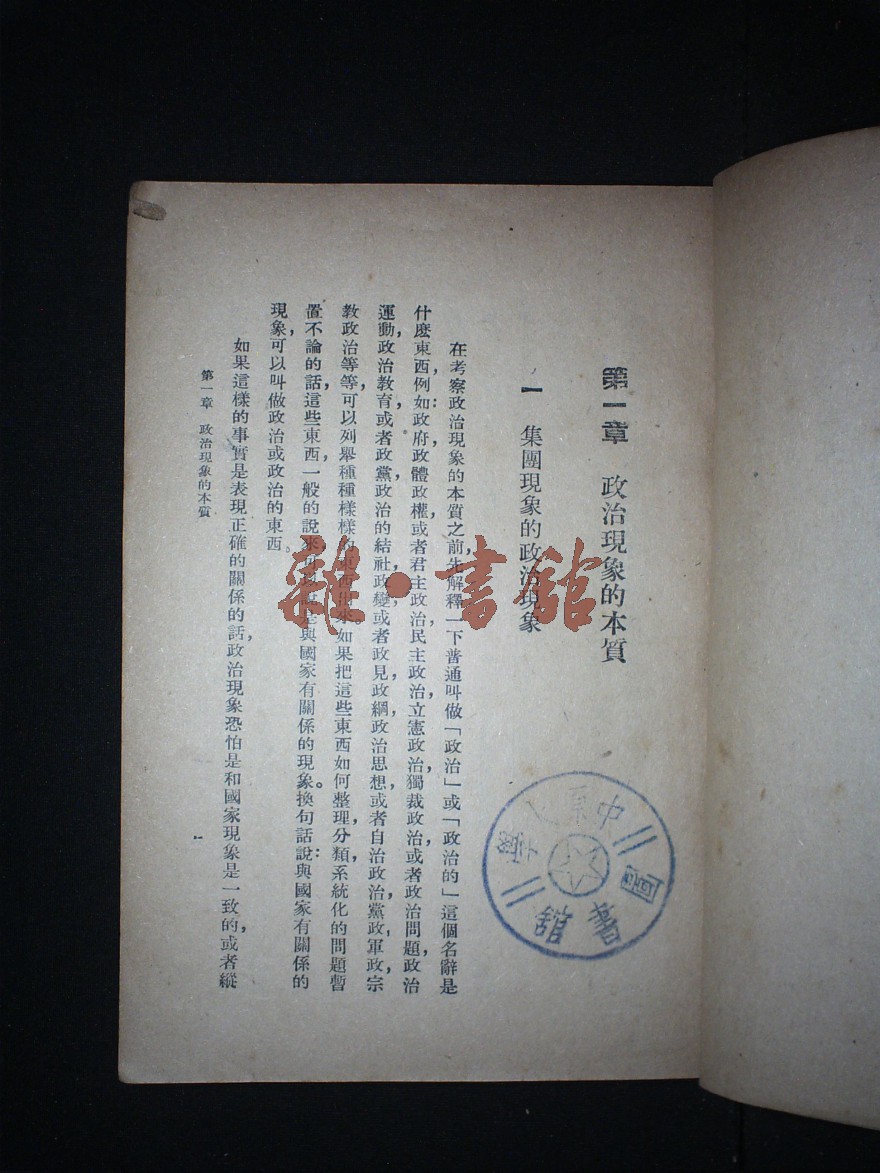 第一章　政治現象的本質
一　集團現象的政治現象
在考察政治現象的本質之前，先解釋一下普通叫做「政治」或「政治的」這個名辭是
什麽東西，例如：政府政體政權或者君主政治，民主政治，立憲政治，獨裁政治，或者政治問題，政治
運動，政治教育，或者政黨，政治的結社，政變，或者政見，政綱，政治思想，或者自治政治，黨政，軍政，宗
教政治等等，可以列舉種種樣樣的東西出來。如果把這些東西如何整理，分類，系統化的問題暫
置不論的話，這些東西，一般的說來，可以說是與國家有關係的現象。換句話說：與國家有關係的
現象，可以叫做政治或政治的東西。
如果這樣的事實是表現正確的關係的話，政治現象恐怕是和國家現象是一致的，或者縱
第一章　政治現象的本質
一
中原大學
圖書館
雜·書館